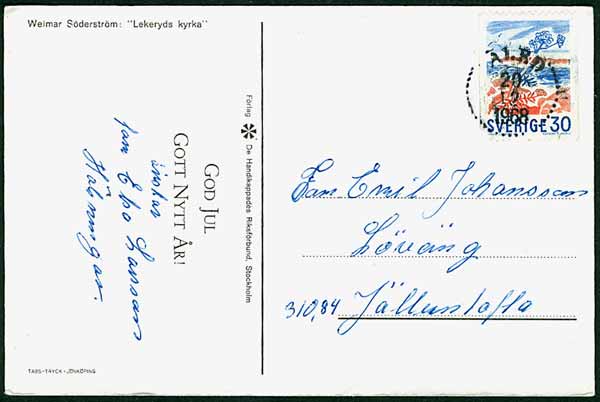 Weimar Söderström: "Lekeryds kyrka"
GOD JUL
GOTT NYTT ÅR!
önskar
fam Ebo Larssons
Förlag De Handikappades Riksförbund, Stockholm
TABS-TRYCK-JÖNKÖPING
20
12
1968
SVERIGE 30
Fam Emil Johansson
Löväng
310,84 Jälluntofta